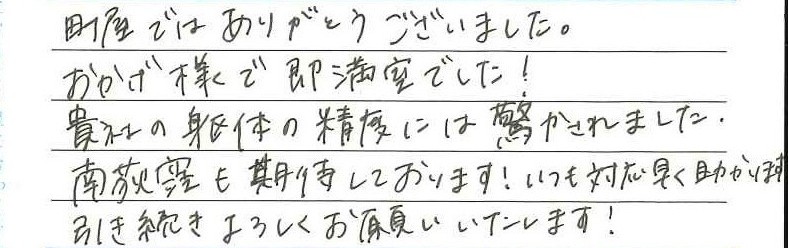 町屋ではありがとうございました。
おかげ様で即満室でした!
貴社の躯体の精度には驚かされました.
南荻窪も期待しております!いつも対応早く助かります
引き続きよろしくお願いいたします!